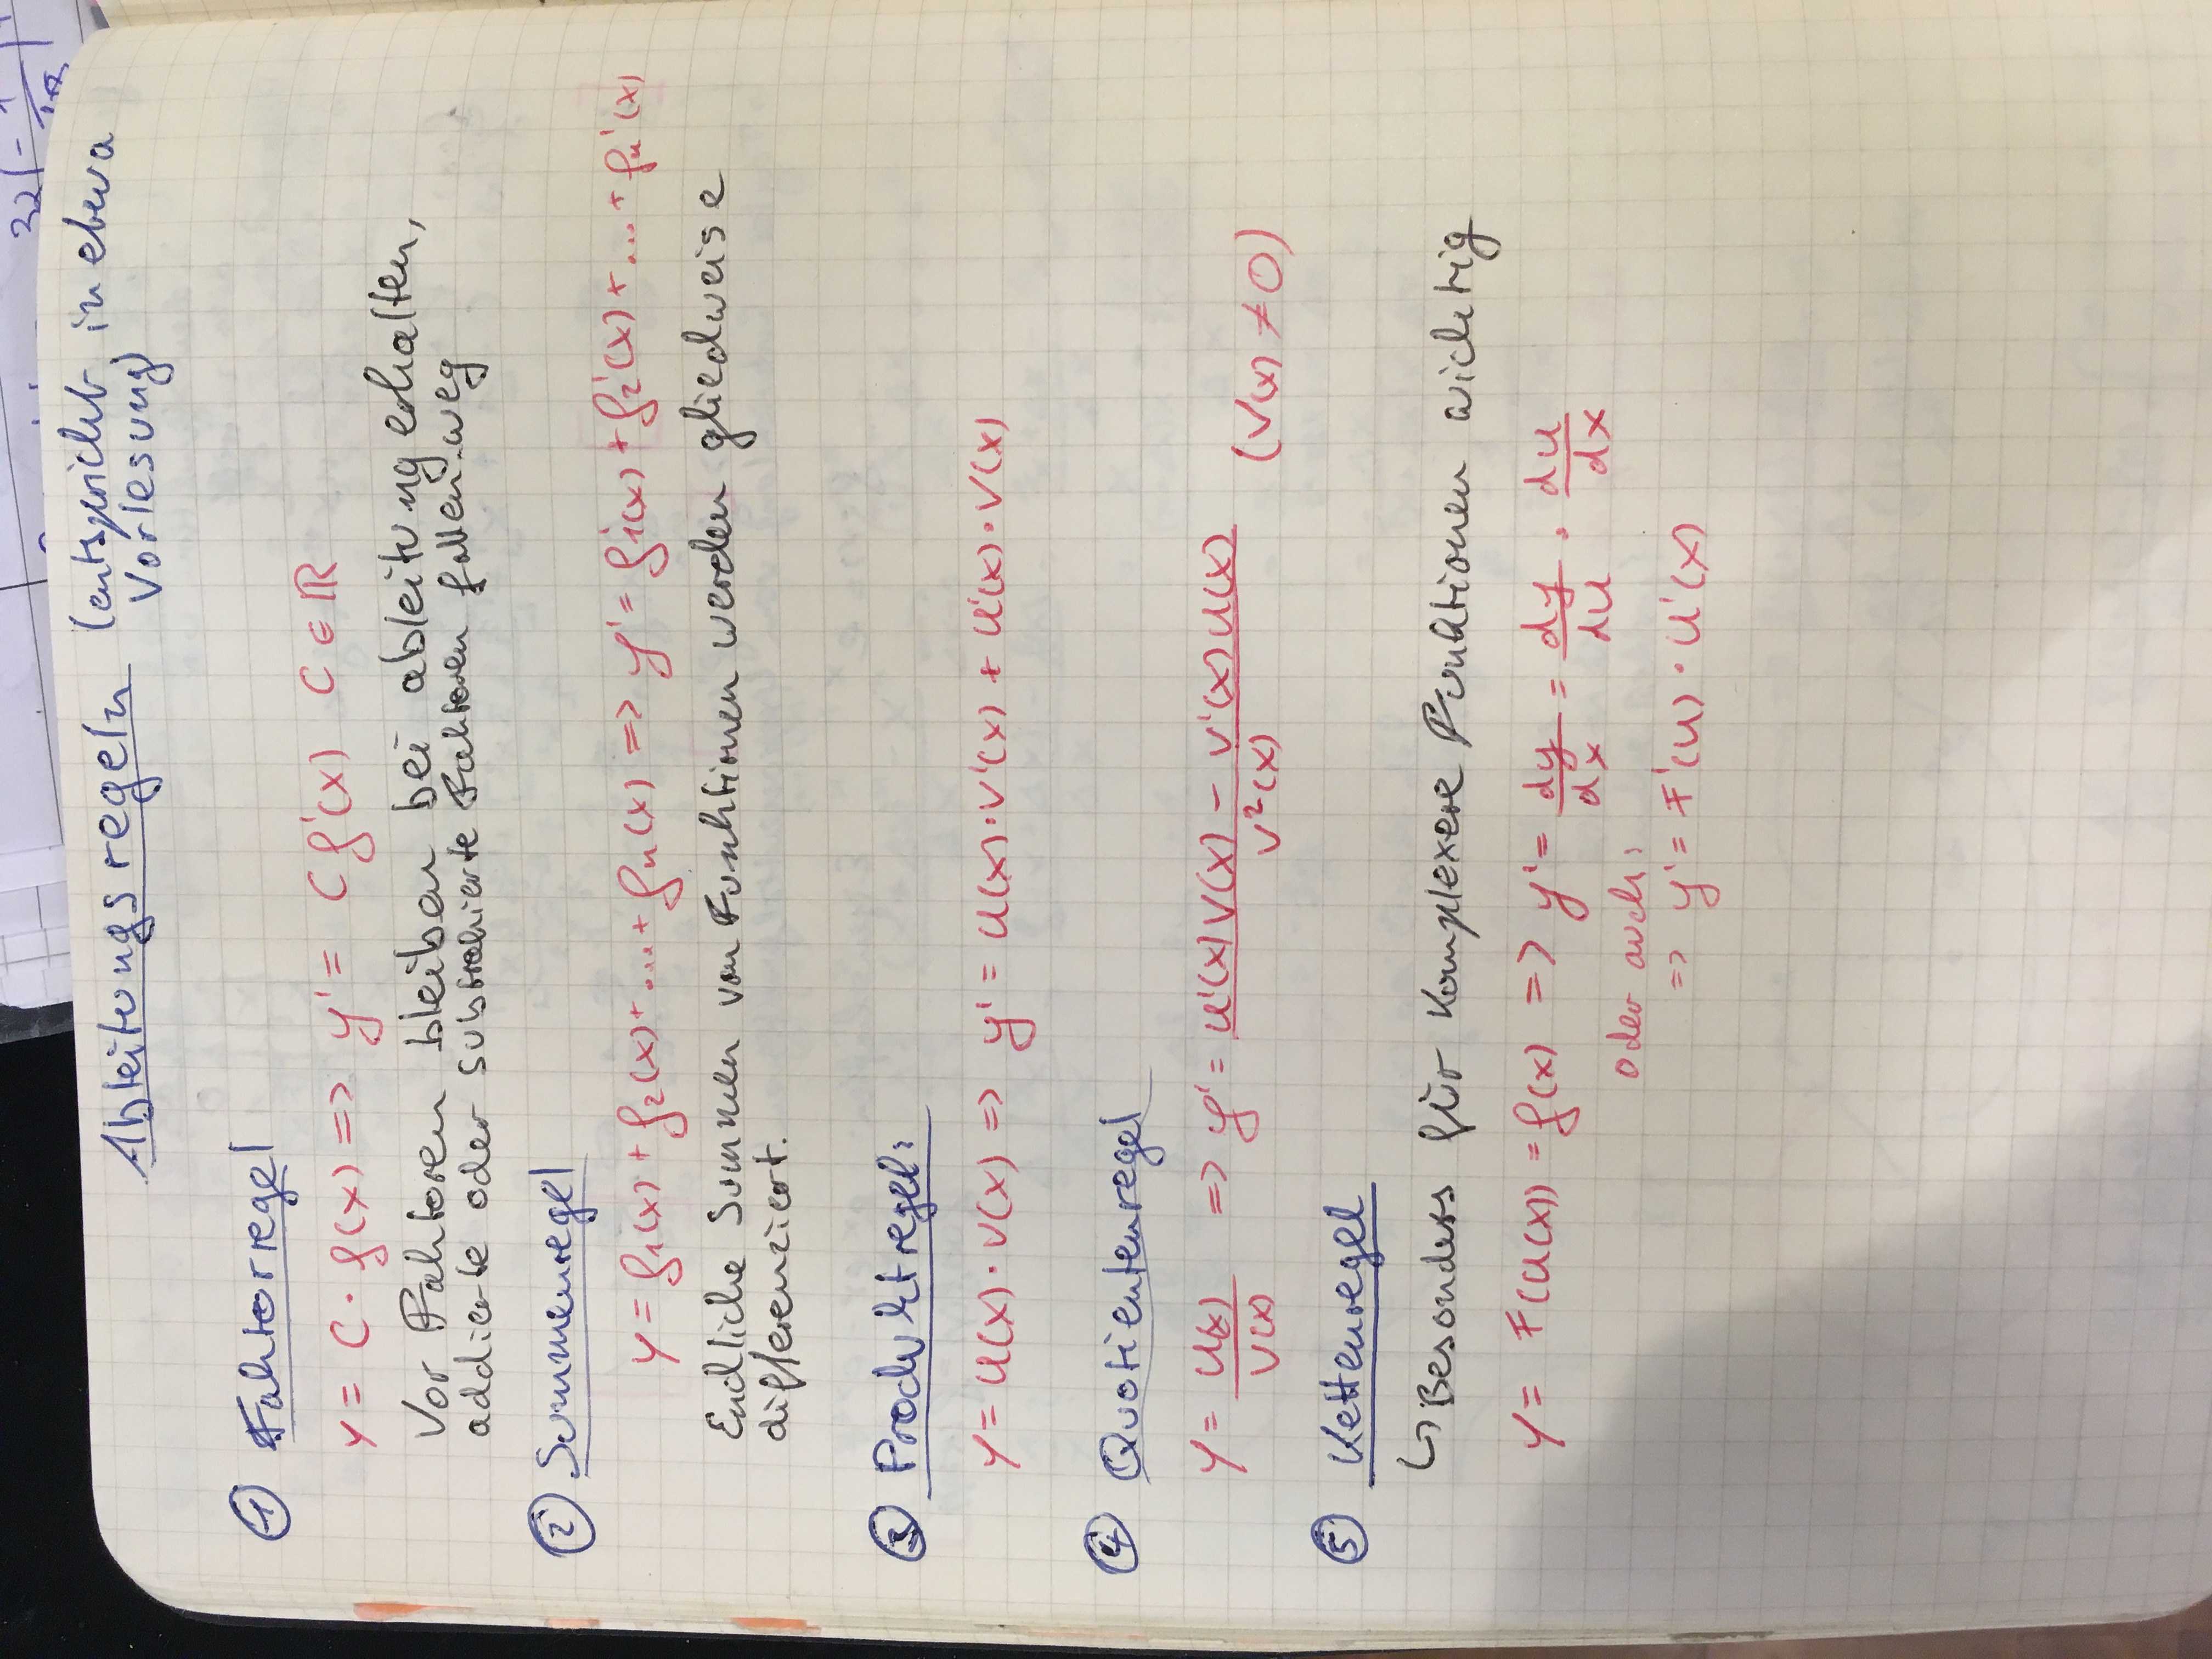 32(-1/12)
Ableitungsregeln (entspricht in etwa
Vorlesung)
① Faktorregel
y = C · f(x) => y' = C f'(x) C ∈ ℝ
Vor Faktoren bleiben bei ableitung erhalten,
addierte oder substrahierte Faktoren fallen weg
② Summenregel
y = f₁(x) + f₂(x) + ... + fn(x) => y' = f₁'(x) + f₂'(x) + ... + fn'(x)
Endliche Summen von Funktionen werden gliedweise
differenziert.
③ Produktregel:
y = u(x) · v(x) => y' = u(x) · v'(x) + u'(x) · v(x)
④ Quotientenregel
y = u(x)/v(x) => y' = (u'(x) v(x) - v'(x) u(x))/v²(x) (v(x) ≠ 0)
⑤ Kettenregel
↳ Besonders für Komplexere Funktionen wichtig
y = F(u(x)) = f(x) => y' = dy/dx = dy/du · du/dx
oder auch:
=> y' = F'(u) · u'(x)